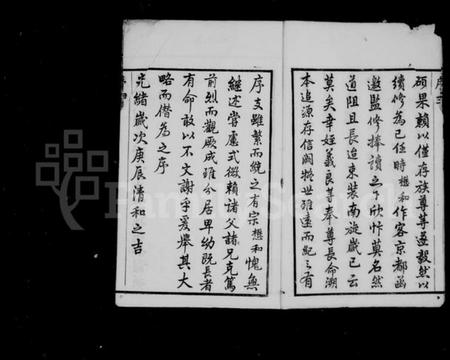 碩果賴以僅存族尊等並毅然以
續修為己任時想和作客京都函
邀監修捧讀之下欣忭莫名然
道阻且長迨束裝南旋歲已云
莫矣幸姪義良等奉尊長命溯
本追源存信闕疑世雖遠而紀之有
序支雖繁而統之有宗想和愧無
繼述嘗處式微賴諸父諸兄克篤
前烈而觀厥成雖分居卑幼既長者
有命敢以不文謝乎爰舉其大
略而僭為之序
光緒歲次庚辰清和之吉